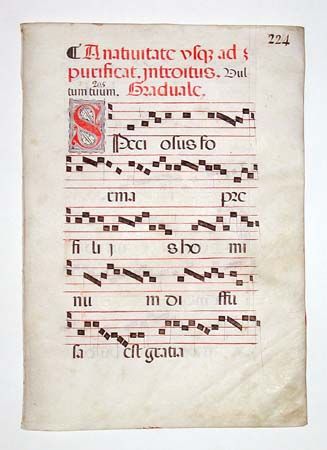 224
¶ A natiuitate vsqꝫ ad s
purificat. Introitus. Vul
tum tuum. 205 Graduale.
S peci osus fo
rma pre
fi li j s ho mi
nu m di ffu
sa est gratia